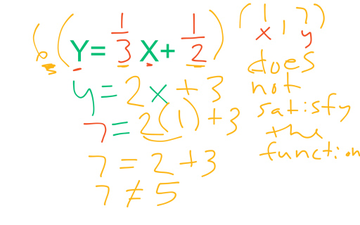 6 ( Y = 1/3 X + 1/2 )
y = 2x + 3
7 = 2(1) + 3
7 = 2 + 3
7 ≠ 5
(1, 7)
x y
does
not
satisfy
the
function